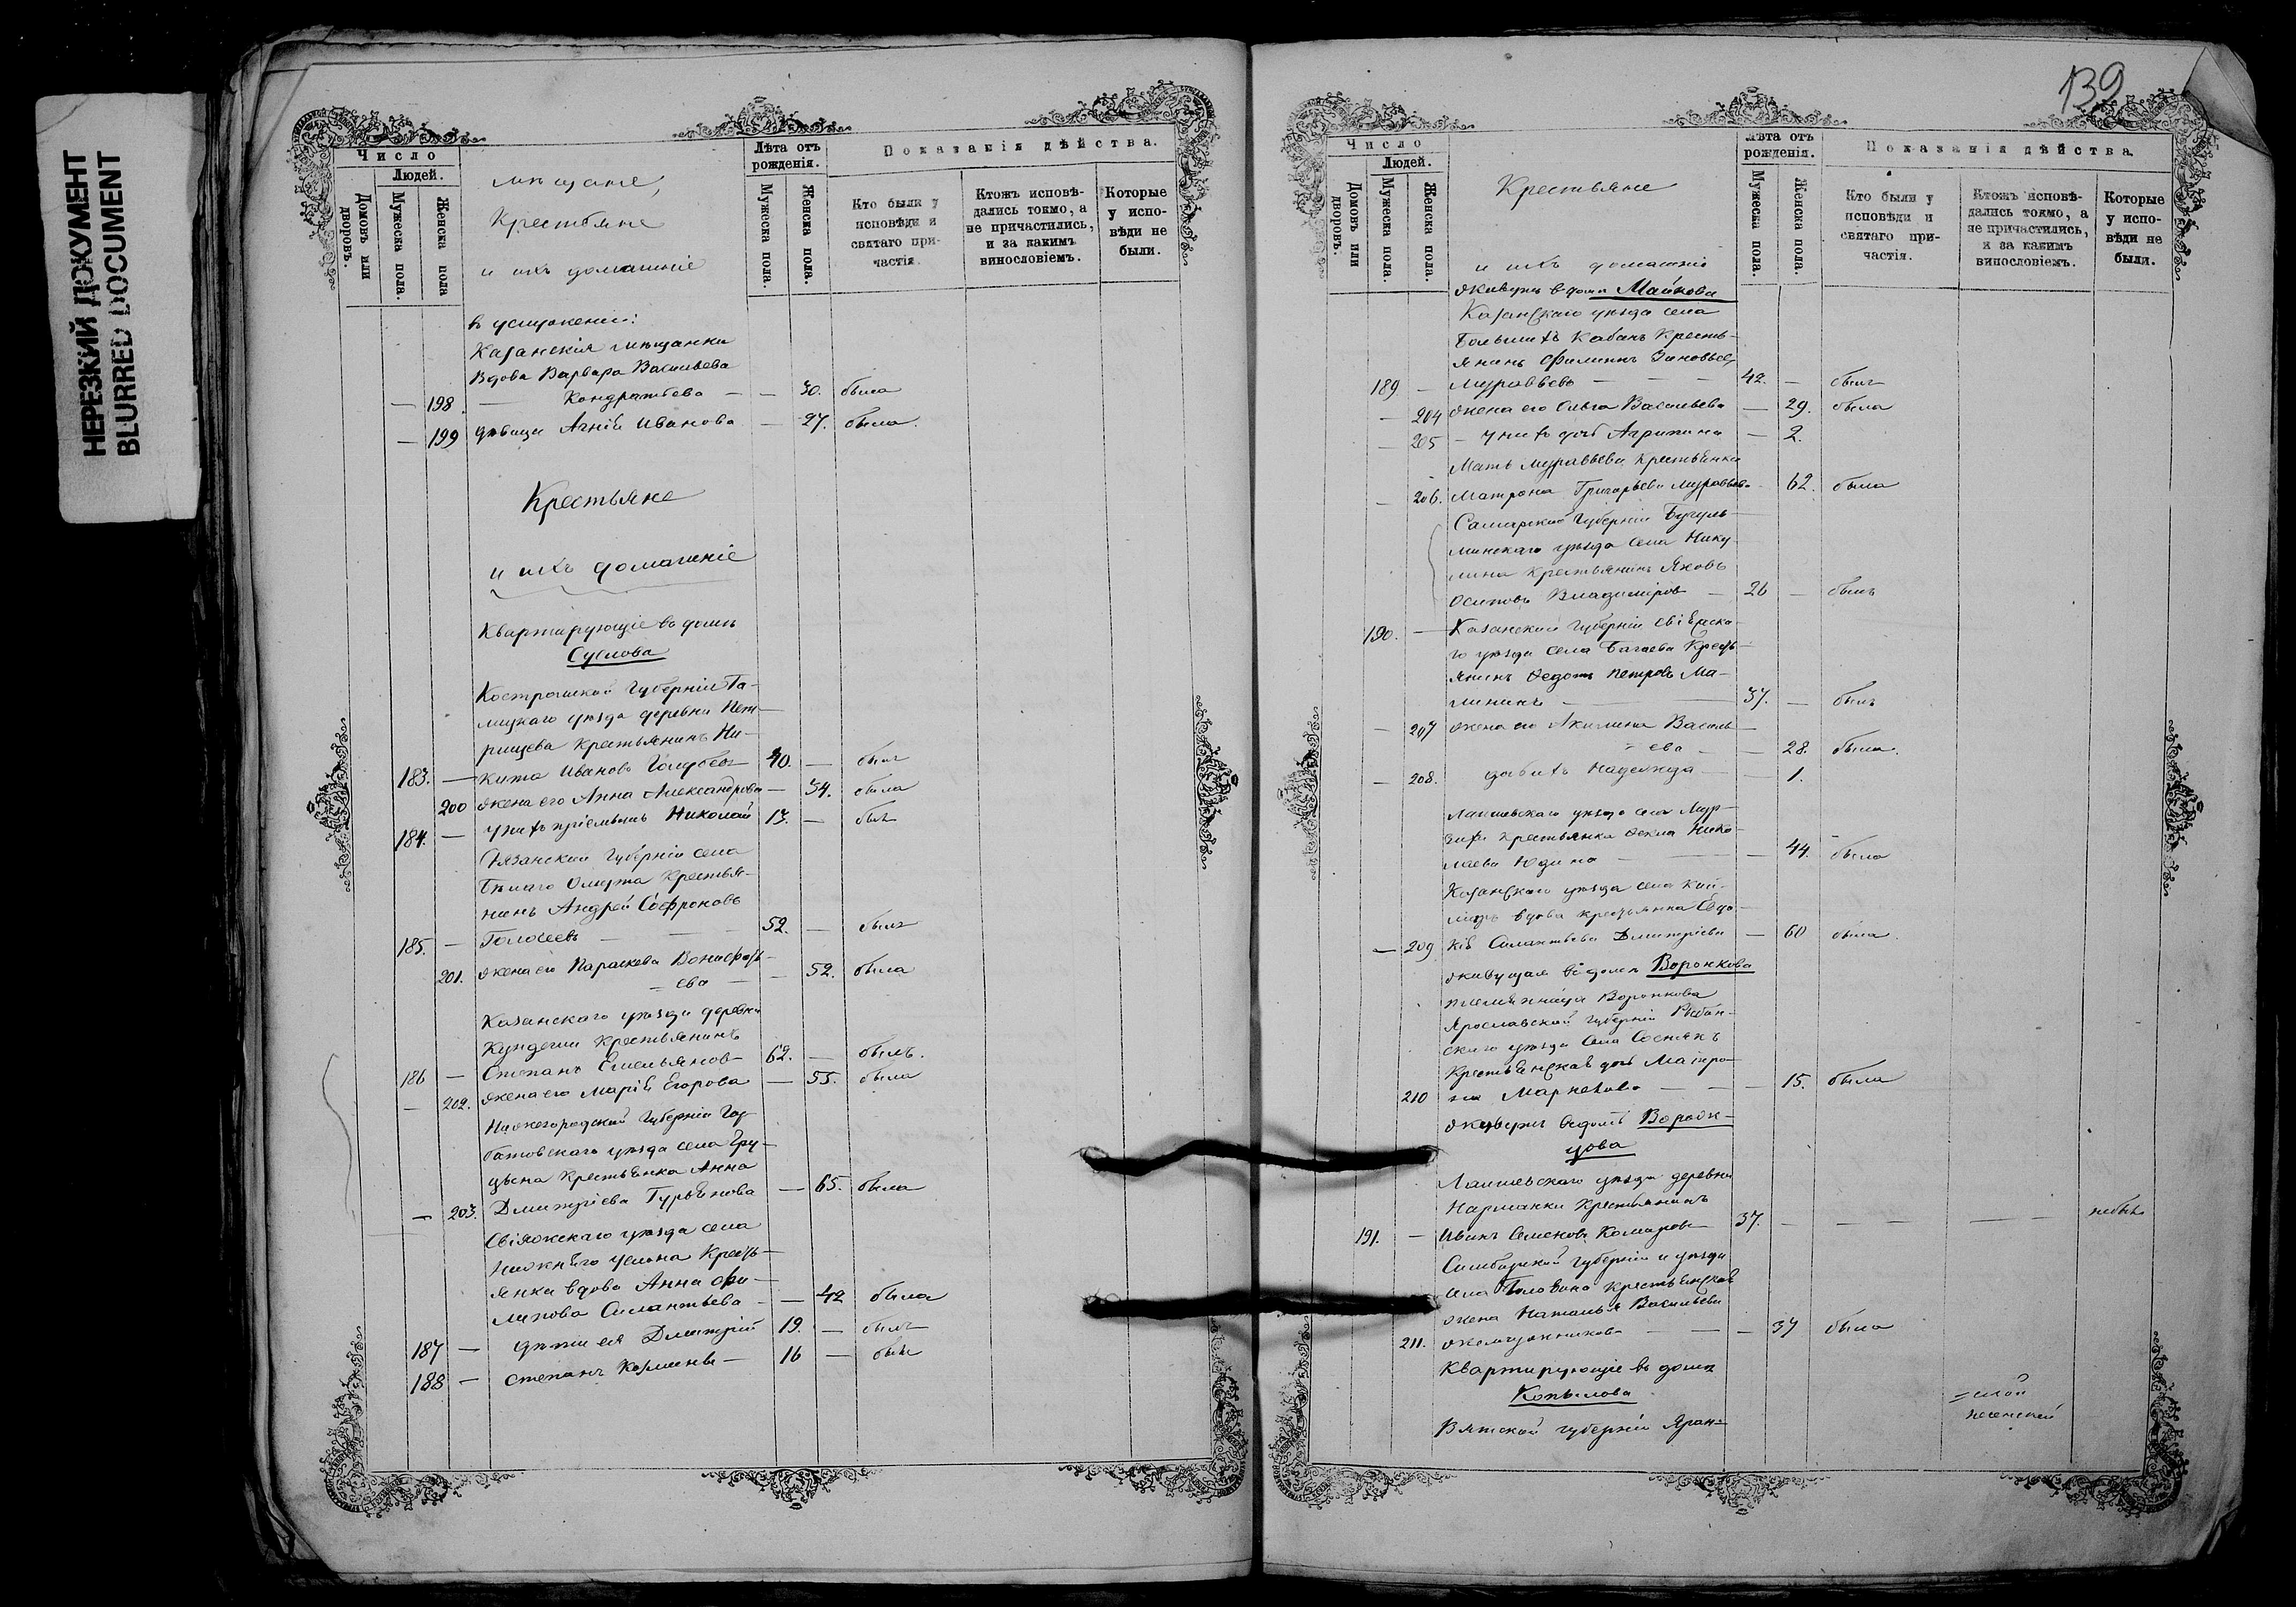 НЕРЕЗКИЙ ДОКУМЕНТ
BLURRED DOCUMENT
Число
Людей.
Домовъ или дворовъ.
Мужеска пола.
Женска пола
мѣщане,
Крестьяне
и ихъ домашніе
Лѣта отъ рожденія.
Мужеска пола.
Женска пола.
Показанія дѣйства.
Кто были у исповѣди и святаго причастія.
Ктожъ исповѣдались токмо, а не причастились, и за какимъ винословіемъ.
Которые у исповѣди не были.
въ услуженіи:
Казанскія мѣщанки
Вдова Варвара Васильева
— 198 — Кондратьева — — 30. была
— 199 дѣвица Агнія Иванова — 27. была.
Крестьяне
и ихъ домашніе
Квартирующіе въ домѣ
Суслова
Костромской Губерніи Га-
лицкаго уѣзда деревни
крестьянинъ Ни-
183. — кита Ивановъ 40. — былъ
200 жена его Анна Александрова — 34. была
184. — у нихъ пріемышъ Николай 13. — былъ
Рязанской Губерніи села
Бѣлаго Омута Крестья-
нинъ Андрей Софроновъ
185. — 52. — былъ
201. жена его Параскева
= ева — — 52. была
Казанскаго уѣзда деревни
Кундеши Крестьянинъ
186 — Степанъ Емельянов 62. — былъ.
— 202. жена его Марія Егорова — 55. была
Нижегородской Губерніи Гор-
батовскаго уѣзда села
Крестьянка Анна
— 203. Дмитріева Гурьянова — 65. была
Свіяжскаго уѣзда села
Нижняго Услона Кресть-
янка вдова Анна Фи-
липова Силантьева — — 42 была
187 — дѣти ея Дмитрій 19. — былъ
188 — Степанъ Козмины — 16 — былъ
139
Число
Людей.
Домовъ или дворовъ.
Мужеска пола.
Женска пола.
Крестьяне
и ихъ домашніе
Лѣта отъ рожденія.
Мужеска пола.
Женска пола.
Показанія дѣйства.
Кто были у исповѣди и святаго причастія.
Ктожъ исповѣдались токмо, а не причастились, и за какимъ винословіемъ.
Которые у исповѣди не были.
живутъ в домѣ Майкова
Казанскаго уѣзда села
Большихъ Кабанъ Кресть-
янинъ Филиппъ Зиновьев
189 — Муравьевъ — — — 42. — былъ
— 204 жена его Ольга Васильева — 29. была
— 205 — у нихъ дочь Агрипина — 2.
Мать Муравьева крестьянка
— 206. Матрона Григорьева Муравьева 62. была
Самарской Губерніи Бугуль-
минскаго уѣзда села Нику-
лина крестьянинъ Яковъ
Осиповъ Владиміров — 26 — былъ
190. — Казанской Губерніи Свіяжска-
го уѣзда села Багаева Кресть-
янинъ Федотъ Петровъ Ма-
лининъ — 37. — былъ
— 207 жена его Акилина Василь-
= ева — — 28. была.
— 208. дочь ихъ Надежда — — 1.
Лаишевскаго уѣзда села Мур-
зихи крестьянка Фекла Нико-
лаева Юдина — — — 44. была
Казанскаго уѣзда села
вдова крестьянка Евдо-
— 209 кія Силантьева Дмитріева — 60 была.
живущая въ домѣ Воронкова
племянница Воронкова
Ярославской Губерніи Рыбин-
скаго уѣзда села
Крестьянская дочь Матро-
210 на — — — 15. была
живутъ въ домѣ
цова
Лаишевскаго уѣзда деревни
Нармонки Крестьянинъ
191. — Иванъ Семеновъ Комаров 37. — — — — небылъ
Симбирской Губерніи и уѣзда
села Крестьянская
жена Наталья Васильева
211. — — — 37 была
Квартирующіе въ домѣ
Копылова
Вятской Губерніи Яран-